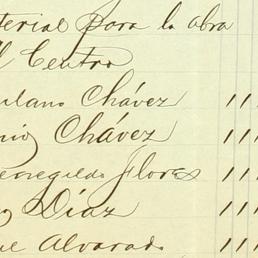 terial para la obra
l Centro
ulano Chávez 11
nio Chávez 111
enegildo Flores 111
Díaz 111
ue Alvarado 111